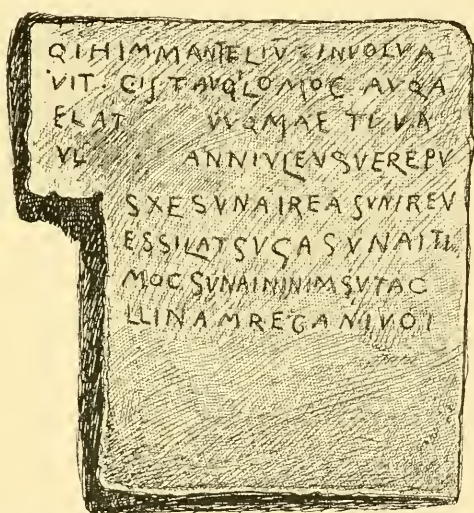 QIHIMMANTELIV · INVOLVA
VIT · CISTAVQLOMOC AVQA
ELAT VVQMAE TLVA
VL ANNIVLEVSVEREPV
SXESVNAIREASVNIREV
ESSILATSVGASVNAITI
MOCSVNAININIMSVTAC
LLINAMREGANIVOI